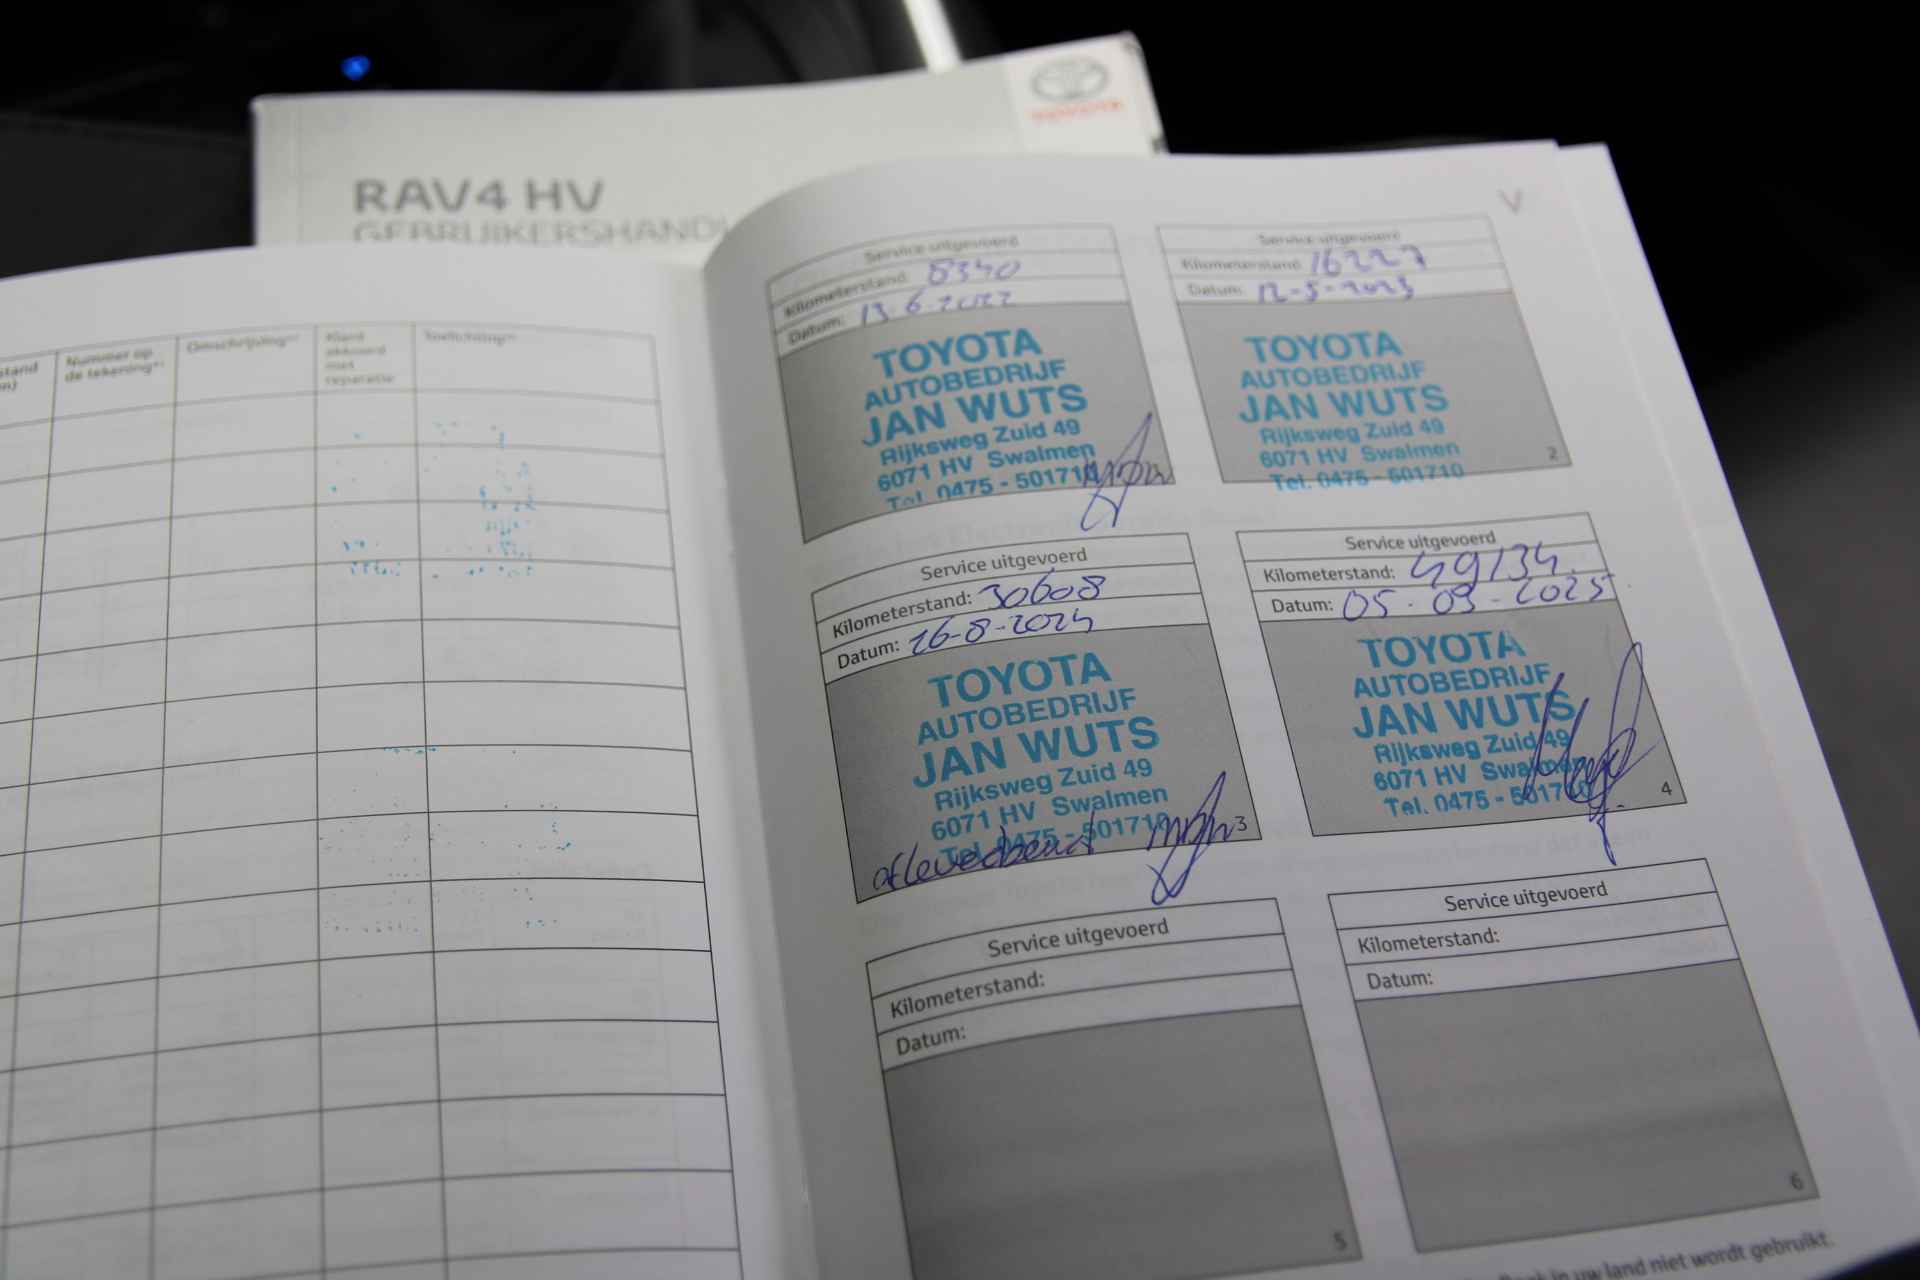 TOYOTA
RAV4 HV
GEBRUIKERSHANDL
stand
Nummer op
de tekening
Omschrijving
Klant
akkoord
met
reparatie
Toelichting
V
Service uitgevoerd
Kilometerstand: 8340
Datum: 13-6-2022
TOYOTA
AUTOBEDRIJF
JAN WUTS
Rijksweg Zuid 49
6071 HV Swalmen
Tel. 0475 - 501710
Service uitgevoerd
Kilometerstand: 16227
Datum: 12-5-2023
TOYOTA
AUTOBEDRIJF
JAN WUTS
Rijksweg Zuid 49
6071 HV Swalmen
Tel. 0475 - 501710
2
Service uitgevoerd
Kilometerstand: 30608
Datum: 26-8-2024
TOYOTA
AUTOBEDRIJF
JAN WUTS
Rijksweg Zuid 49
6071 HV Swalmen
Tel. 0475 - 501710
3
Service uitgevoerd
Kilometerstand: 49134
Datum: 05-09-2025
TOYOTA
AUTOBEDRIJF
JAN WUTS
Rijksweg Zuid 49
6071 HV Swalmen
Tel. 0475 - 501710
4
Service uitgevoerd
Kilometerstand:
Datum:
5
Service uitgevoerd
Kilometerstand:
Datum:
6
in uw land niet wordt gebruikt.